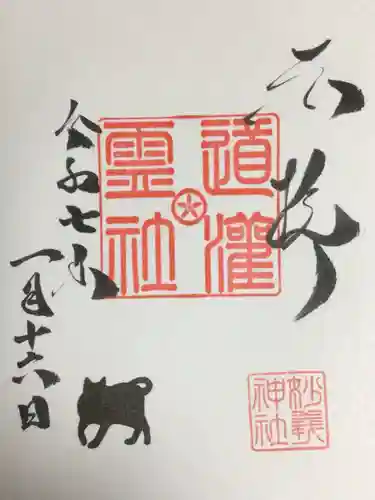 奉拝
道灌
霊社
令和七年
一月十六日
妙義
神社